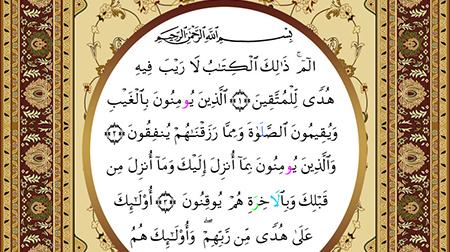 بِسْمِ اللَّهِ الرَّحْمَٰنِ الرَّحِيمِ
الٓمٓۚ ذَٰلِكَ اَلْكِتَٰبُ لَا رَيْبَ فِيهِ
هُدًى لِّلْمُتَّقِينَ ﴿١﴾ اَلَّذِينَ يُومِنُونَ بِالْغَيْبِ
وَيُقِيمُونَ اَلصَّلَوٰةَ وَمِمَّا رَزَقْنَٰهُمْ يُنفِقُونَ ﴿٢﴾
وَالَّذِينَ يُومِنُونَ بِمَا أُنزِلَ إِلَيْكَ وَمَا أُنزِلَ مِن
قَبْلِكَ وَبِالَاخِرَةِ هُمْ يُوقِنُونَ ﴿٣﴾ أُوْلَٰٓئِكَ
عَلَىٰ هُدًى مِّن رَّبِّهِمْ وَأُوْلَٰٓئِكَ هُمُ